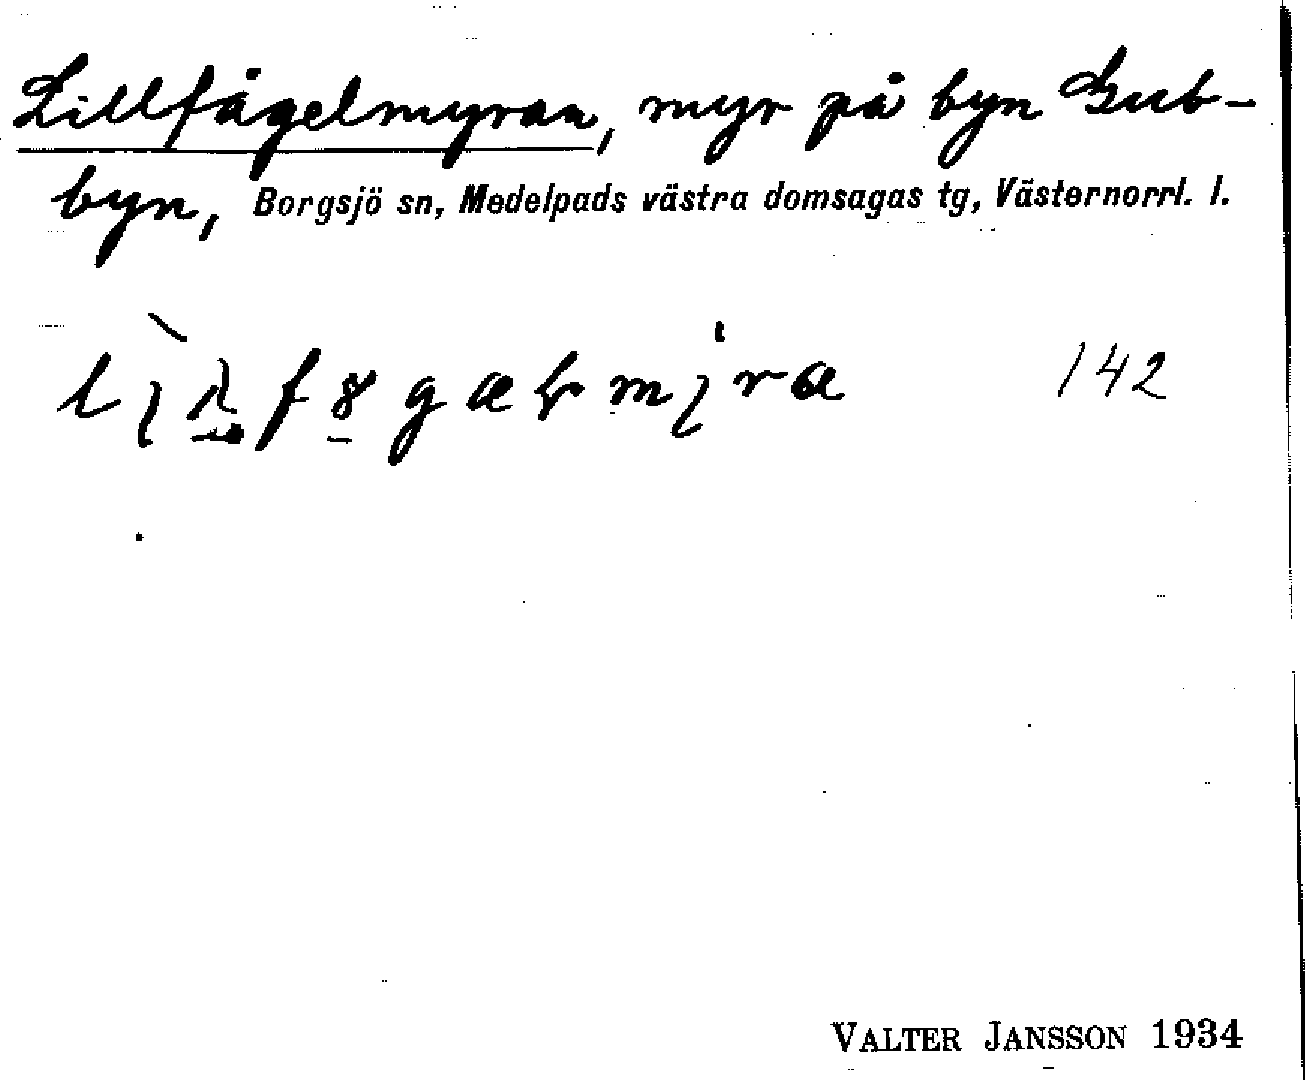 Lillfågelmyran, myr på byn Gub-
byn, Borgsjö sn, Medelpads västra domsagas tg, Västernorrl. l.
142
VALTER JANSSON 1934